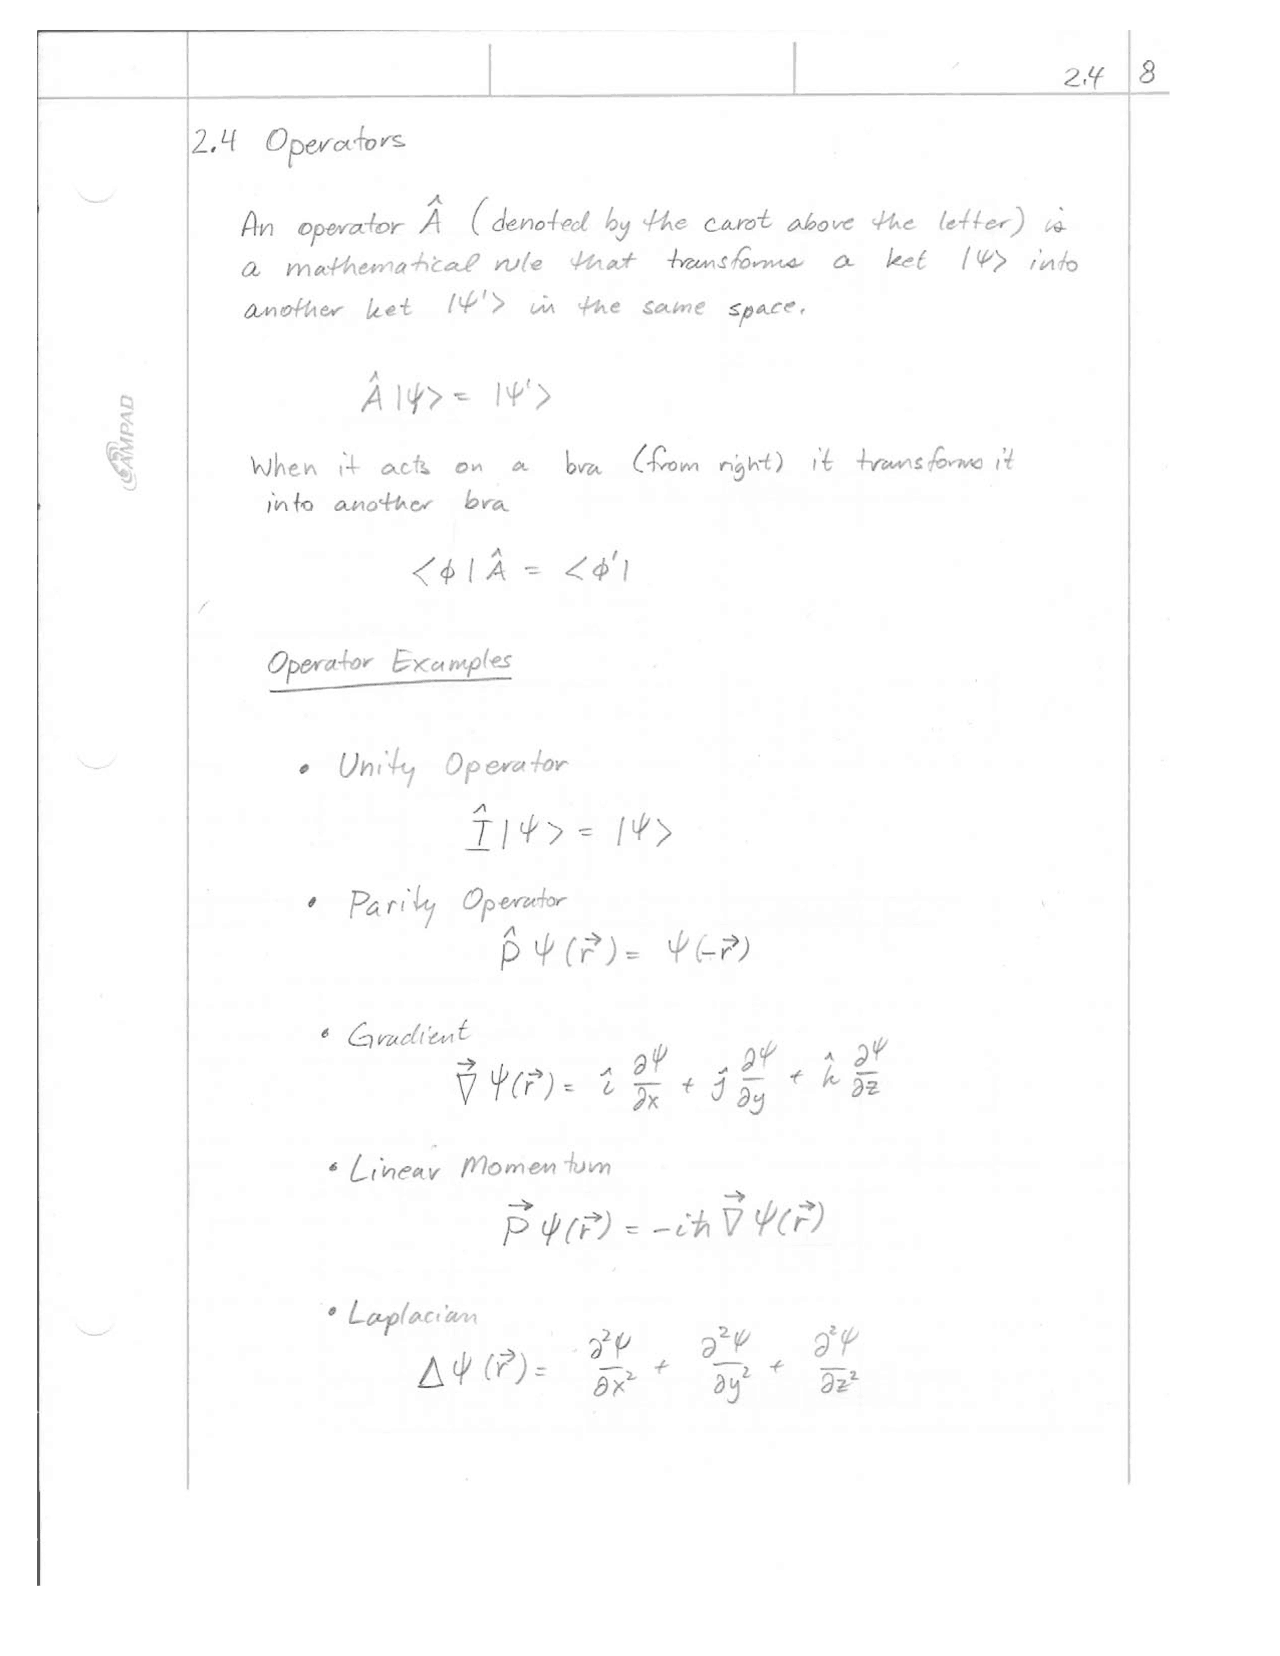 2.4 8
2.4 Operators
An operator Â (denoted by the carot above the letter) is
a mathematical rule that transforms a ket |ψ> into
another ket |ψ'> in the same space.
Â|ψ> = |ψ'>
AMPAD
When it acts on a bra (from right) it transforms it
into another bra
<φ|Â = <φ'|
Operator Examples
• Unity Operator
Î|ψ> = |ψ>
• Parity Operator
P̂ ψ(r⃗) = ψ(-r⃗)
• Gradient
∇⃗ ψ(r⃗) = î ∂ψ/∂x + ĵ ∂ψ/∂y + k̂ ∂ψ/∂z
• Linear Momentum
P⃗ ψ(r⃗) = -iħ ∇⃗ ψ(r⃗)
• Laplacian
Δψ(r⃗) = ∂²ψ/∂x² + ∂²ψ/∂y² + ∂²ψ/∂z²